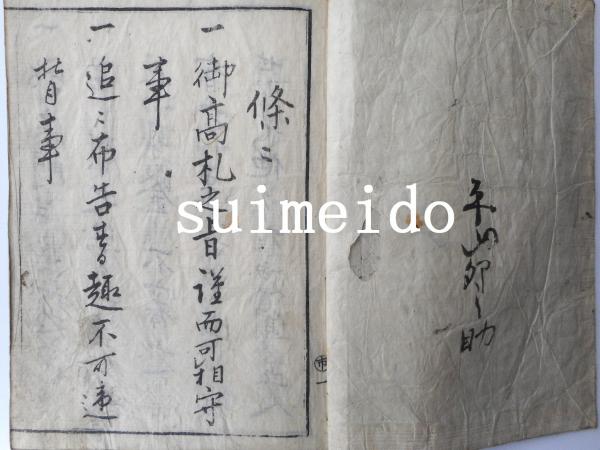 平山卯之助
條〻
一御高札之旨謹而可相守
事
一追〻布告書趣不可違
背事
suimeido
市一